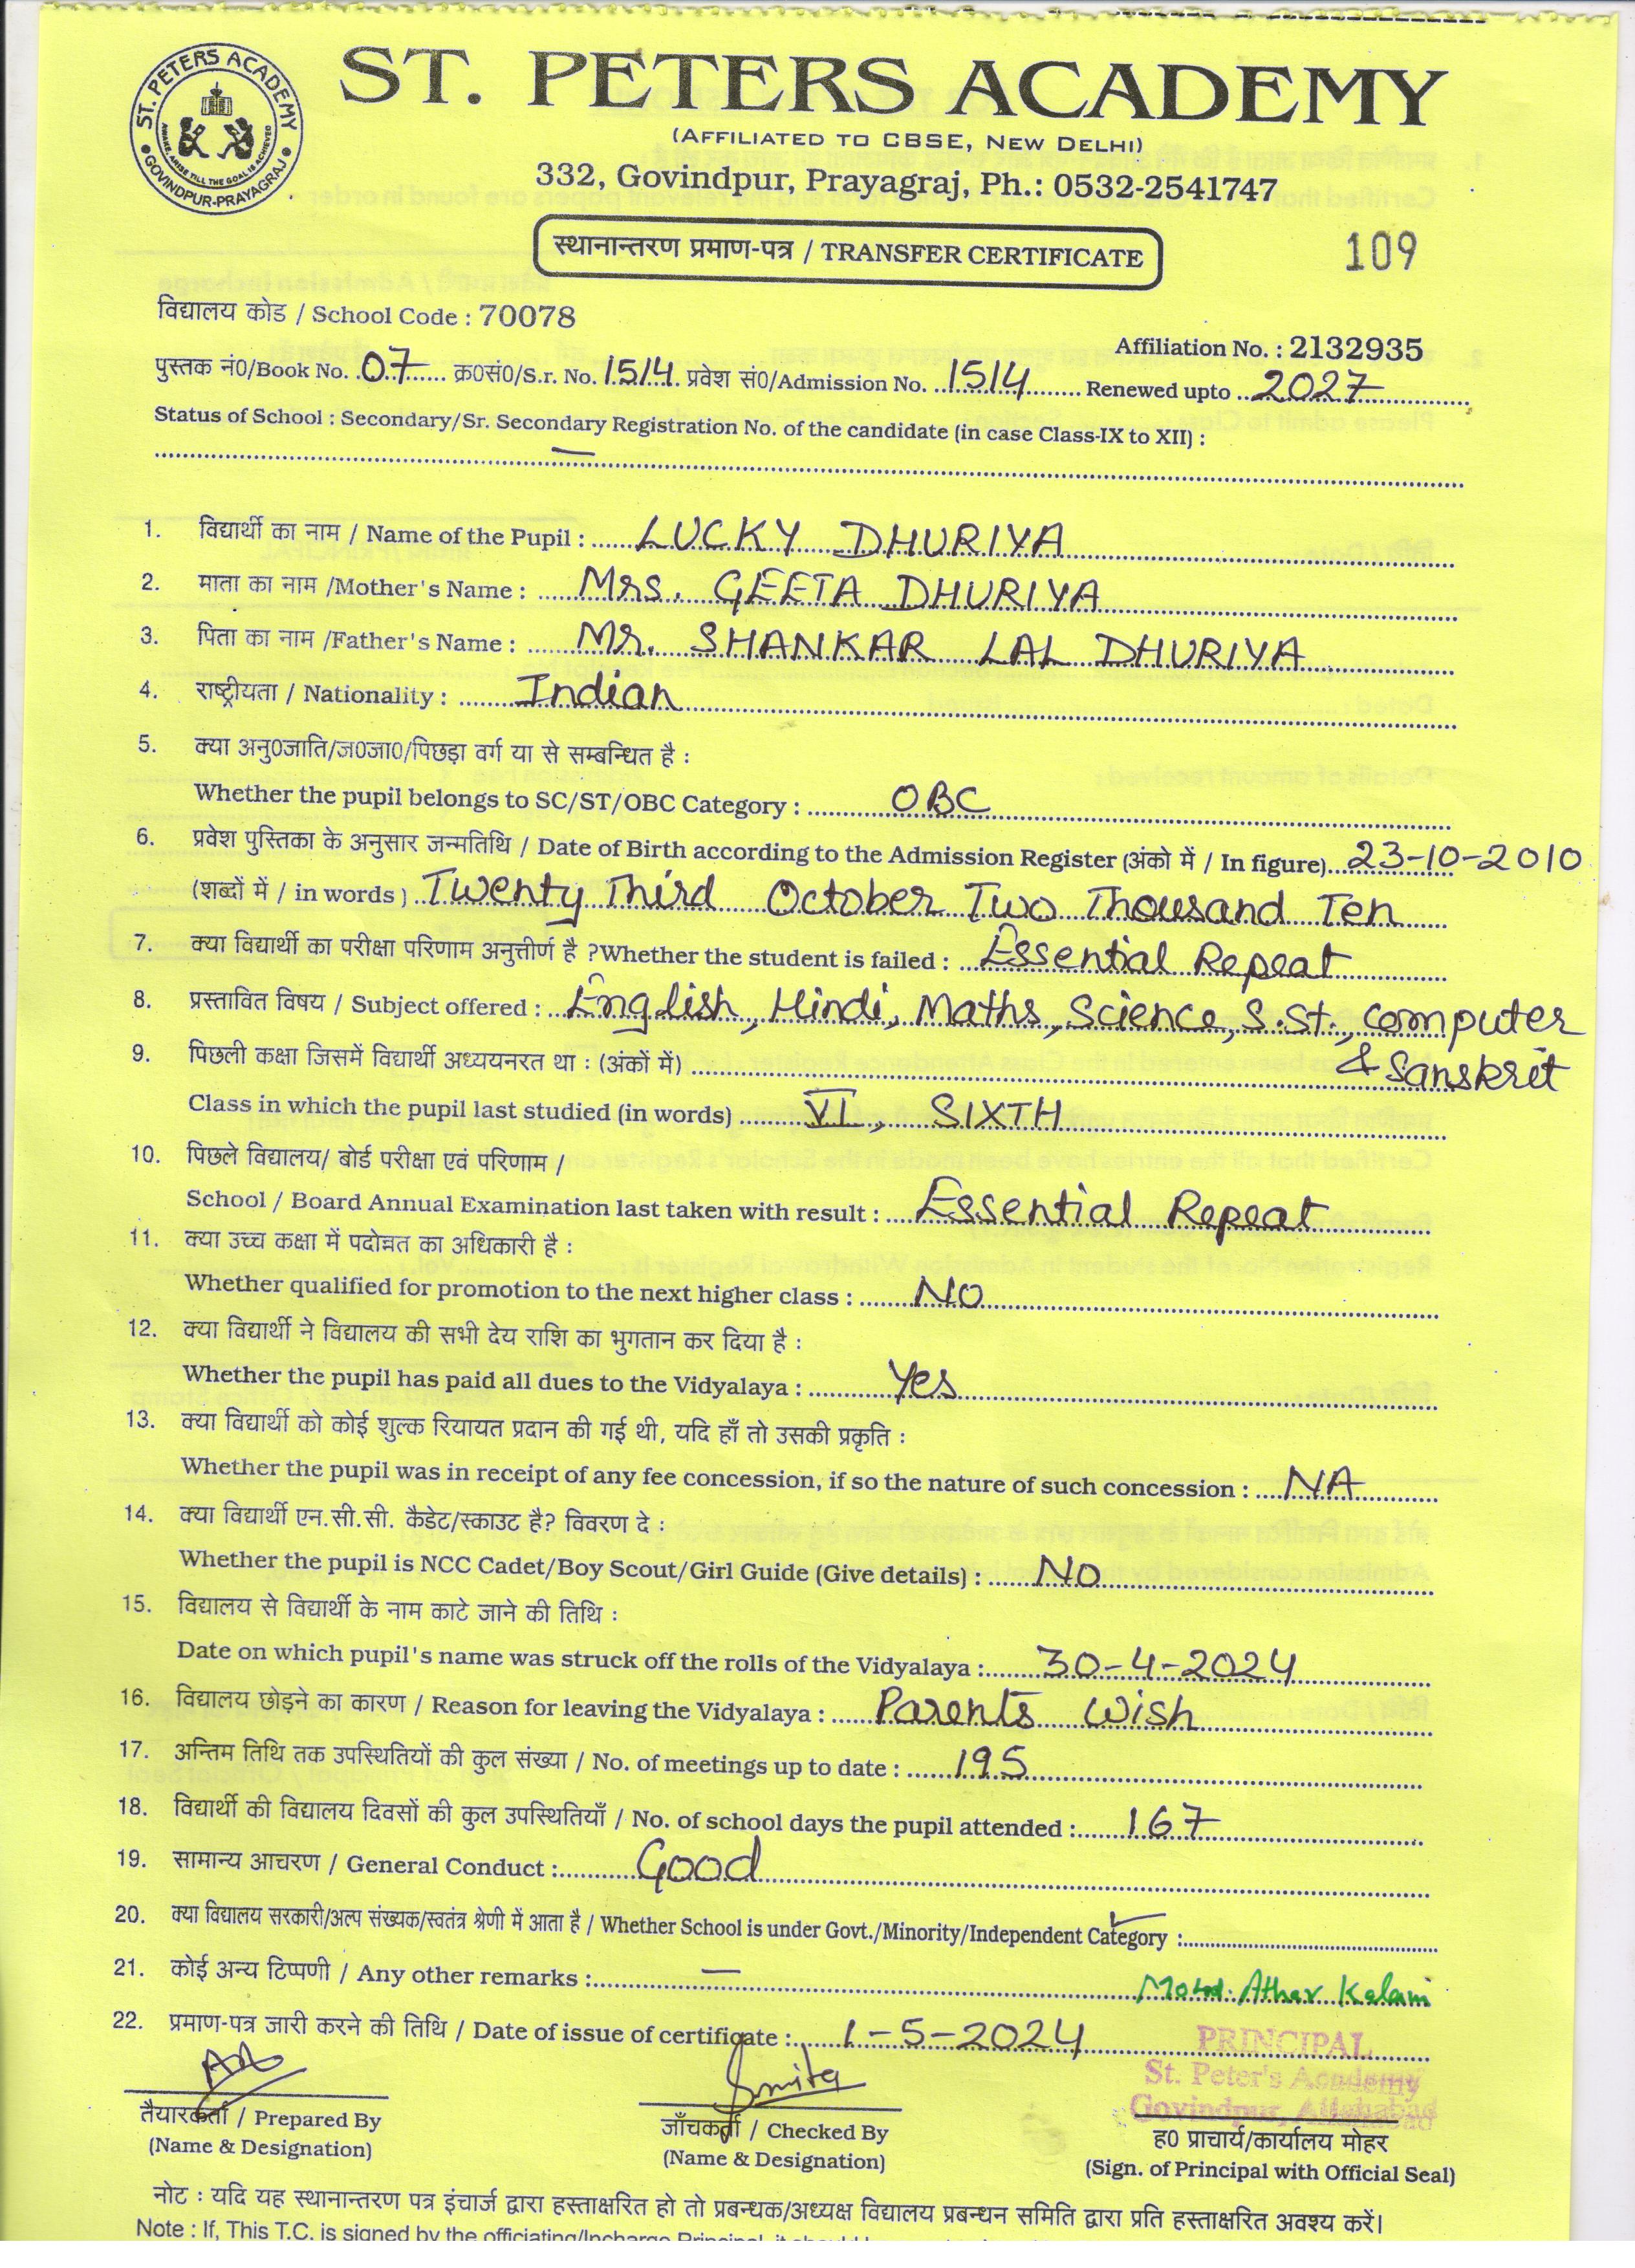 ST. PETERS ACADEMY
GOVINDPUR-PRAYAGRAJ
AWAKE, ARISE TILL THE GOAL IS ACHIEVED
ST. PETERS ACADEMY
(AFFILIATED TO CBSE, NEW DELHI)
332, Govindpur, Prayagraj, Ph.: 0532-2541747
स्थानान्तरण प्रमाण-पत्र / TRANSFER CERTIFICATE
109
विद्यालय कोड / School Code : 70078
Affiliation No. : 2132935
पुस्तक नं0/Book No. 07 क्र0सं0/S.r. No. 1514 प्रवेश सं0/Admission No. 1514 Renewed upto 2027
Status of School : Secondary/Sr. Secondary Registration No. of the candidate (in case Class-IX to XII) :
—
1. विद्यार्थी का नाम / Name of the Pupil : LUCKY DHURIYA
2. माता का नाम /Mother's Name : Mrs. GEETA DHURIYA
3. पिता का नाम /Father's Name : Mr. SHANKAR LAL DHURIYA
4. राष्ट्रीयता / Nationality : Indian
5. क्या अनु0जाति/ज0जा0/पिछड़ा वर्ग या से सम्बन्धित है :
Whether the pupil belongs to SC/ST/OBC Category : OBC
6. प्रवेश पुस्तिका के अनुसार जन्मतिथि / Date of Birth according to the Admission Register (अंको में / In figure) 23-10-2010
(शब्दों में / in words ) Twenty Third October Two Thousand Ten
7. क्या विद्यार्थी का परीक्षा परिणाम अनुत्तीर्ण है ?Whether the student is failed : Essential Repeat
8. प्रस्तावित विषय / Subject offered : English, Hindi, Maths, Science, S.St., Computer
& Sanskrit
9. पिछली कक्षा जिसमें विद्यार्थी अध्ययनरत था : (अंकों में)
Class in which the pupil last studied (in words) VI, SIXTH
10. पिछले विद्यालय/ बोर्ड परीक्षा एवं परिणाम /
School / Board Annual Examination last taken with result : Essential Repeat
11. क्या उच्च कक्षा में पदोन्नत का अधिकारी है :
Whether qualified for promotion to the next higher class : NO
12. क्या विद्यार्थी ने विद्यालय की सभी देय राशि का भुगतान कर दिया है :
Whether the pupil has paid all dues to the Vidyalaya : Yes
13. क्या विद्यार्थी को कोई शुल्क रियायत प्रदान की गई थी, यदि हाँ तो उसकी प्रकृति :
Whether the pupil was in receipt of any fee concession, if so the nature of such concession : NA
14. क्या विद्यार्थी एन.सी.सी. कैडेट/स्काउट है? विवरण दे :
Whether the pupil is NCC Cadet/Boy Scout/Girl Guide (Give details) : NO
15. विद्यालय से विद्यार्थी के नाम काटे जाने की तिथि :
Date on which pupil's name was struck off the rolls of the Vidyalaya : 30-4-2024
16. विद्यालय छोड़ने का कारण / Reason for leaving the Vidyalaya : Parents Wish
17. अन्तिम तिथि तक उपस्थितियों की कुल संख्या / No. of meetings up to date : 195
18. विद्यार्थी की विद्यालय दिवसों की कुल उपस्थितियाँ / No. of school days the pupil attended : 167
19. सामान्य आचरण / General Conduct : Good
20. क्या विद्यालय सरकारी/अल्प संख्यक/स्वतंत्र श्रेणी में आता है / Whether School is under Govt./Minority/Independent Category :
21. कोई अन्य टिप्पणी / Any other remarks : —
Mohd. Athar Kalam
22. प्रमाण-पत्र जारी करने की तिथि / Date of issue of certificate : 1-5-2024
PRINCIPAL
St. Peter's Academy
Govindpur, Allahabad
Smita
तैयारकर्ता / Prepared By
(Name & Designation)
जाँचकर्ता / Checked By
(Name & Designation)
ह0 प्राचार्य/कार्यालय मोहर
(Sign. of Principal with Official Seal)
नोट : यदि यह स्थानान्तरण पत्र इंचार्ज द्वारा हस्ताक्षरित हो तो प्रबन्धक/अध्यक्ष विद्यालय प्रबन्धन समिति द्वारा प्रति हस्ताक्षरित अवश्य करें।
Note : If, This T.C. is signed by the officiating/Incharge Principal, it should